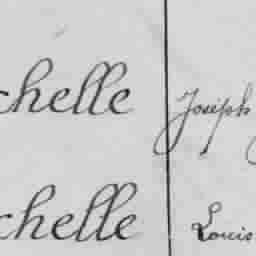 chelle Joseph
chelle Louis